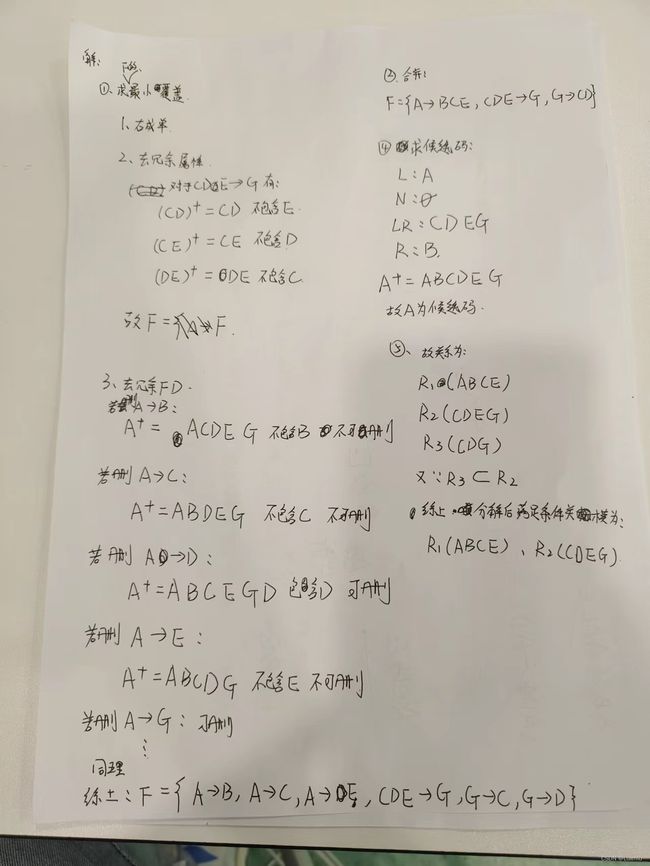 解:
F的
①、求最小覆盖.
1、右成单
2、去冗余属性
对于CDE→G 有:
(CD)⁺ = CD 不包含E.
(CE)⁺ = CE 不包含D
(DE)⁺ = DE 不包含C
故 F = F.
3、去冗余FD.
若删A→B:
A⁺ = ACDEG 不包含B 不可删
若删 A→C:
A⁺ = ABDEG 不包含C 不可删
若删 A→D:
A⁺ = ABCEGD 包含D 可删
若删 A→E:
A⁺ = ABCDG 不包含E 不可删
若删 A→G: 可删
⋮
同理
综上: F = { A→B, A→C, A→E, CDE→G, G→C, G→D}
③ 合并:
F={A→BCE, CDE→G, G→CD}
④ 求候选码:
L: A
N: ∅
LR: CDEG
R: B.
A⁺ = ABCDEG
故A为候选码.
⑤、故关系为:
R₁(ABCE)
R₂(CDEG)
R₃(CDG)
又∵R₃⊂R₂
综上 分解后满足条件关模为:
R₁(ABCE)、R₂(CDEG).